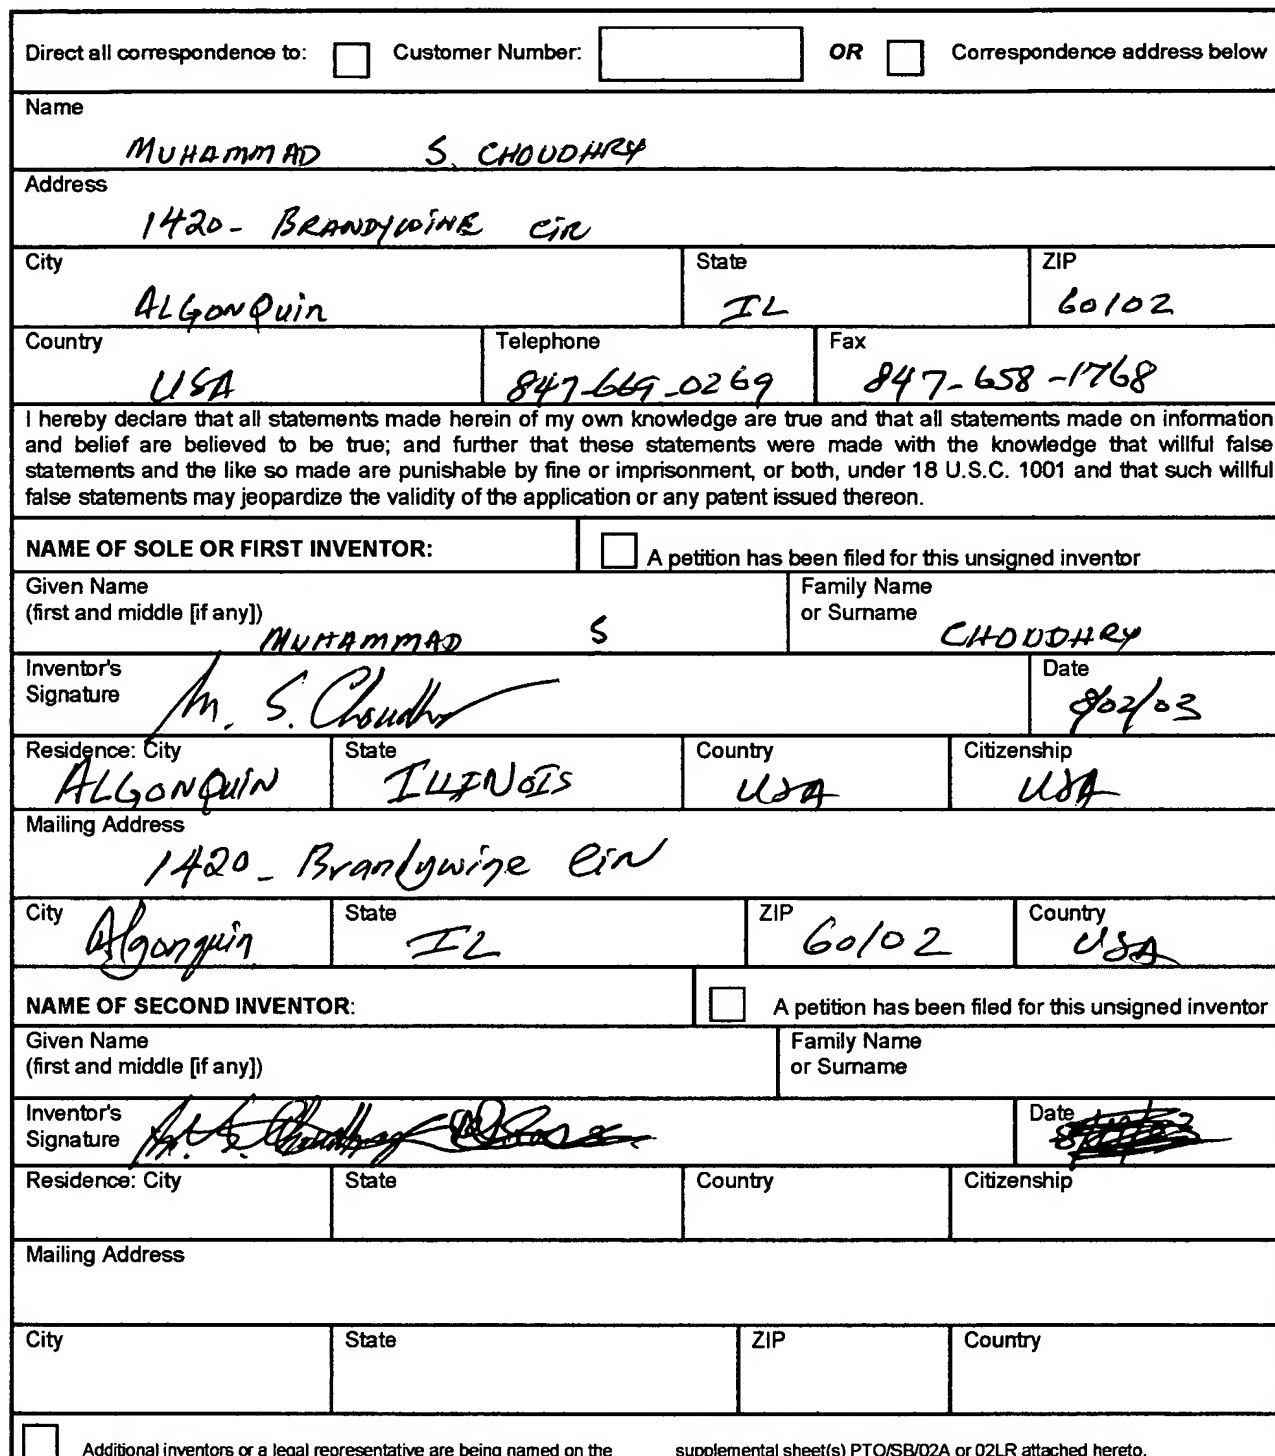 Direct all correspondence to: Customer Number: OR Correspondence address below
Name
MUHAMMAD S. CHOUDHRY
Address
1420- BRANDYWINE CIR
City State ZIP
ALGONQuin IL 60102
Country Telephone Fax
USA 847-669-0269 847-658-1768
I hereby declare that all statements made herein of my own knowledge are true and that all statements made on information
and belief are believed to be true; and further that these statements were made with the knowledge that willful false
statements and the like so made are punishable by fine or imprisonment, or both, under 18 U.S.C. 1001 and that such willful
false statements may jeopardize the validity of the application or any patent issued thereon.
NAME OF SOLE OR FIRST INVENTOR: A petition has been filed for this unsigned inventor
Given Name Family Name
(first and middle [if any]) or Surname
MUHAMMAD S CHOUDHRY
Inventor's Date
Signature M. S. Choudhry 8/02/03
Residence: City State Country Citizenship
ALGONQUIN ILLINOIS USA USA
Mailing Address
1420- Brandywine Cir
City State ZIP Country
Algonquin IL 60102 USA
NAME OF SECOND INVENTOR: A petition has been filed for this unsigned inventor
Given Name Family Name
(first and middle [if any]) or Surname
Inventor's Date
Signature
Residence: City State Country Citizenship
Mailing Address
City State ZIP Country
Additional inventors or a legal representative are being named on the supplemental sheet(s) PTO/SB/02A or 02LR attached hereto.